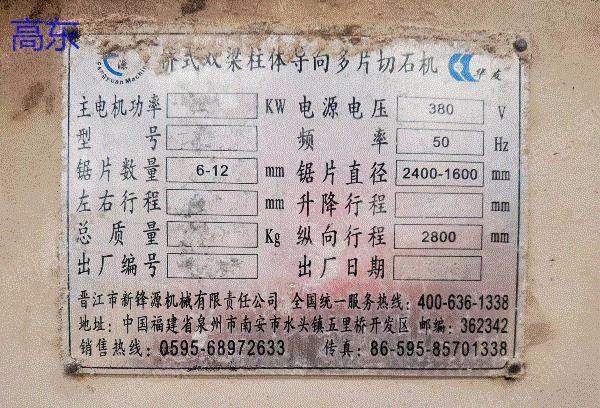 高东
源
Fengyuan Machine
桥式双梁柱体导向多片切石机
华友
主电机功率 KW 电源电压 380 V
型号 频率 50 Hz
锯片数量 6-12 mm 锯片直径 2400-1600 mm
左右行程 mm 升降行程 mm
总质量 Kg 纵向行程 2800 mm
出厂编号 出厂日期
晋江市新锋源机械有限责任公司 全国统一服务热线: 400-636-1338
地址: 中国福建省泉州市南安市水头镇五里桥开发区 邮编: 362342
销售热线: 0595-68972633 传真: 86-595-85701338